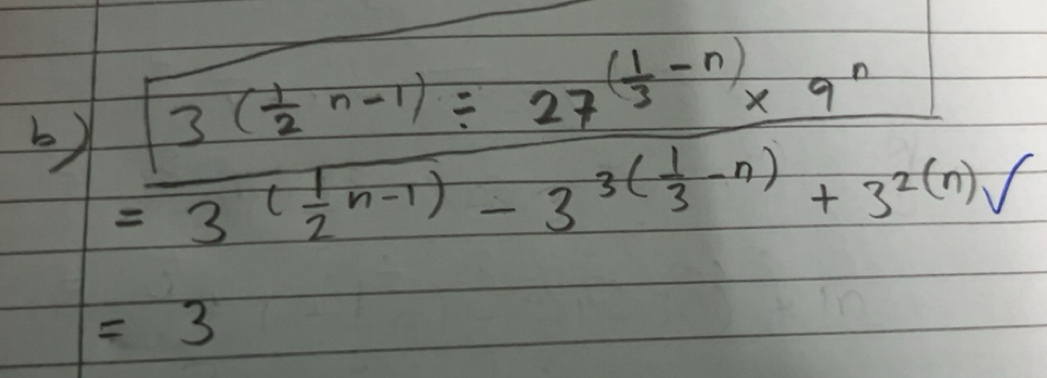 b) 3^(1/2 n-1) ÷ 27^(1/3 - n) × 9^n
= 3^(1/2 n-1) - 3^3(1/3 - n) + 3^2(n) ✓
= 3